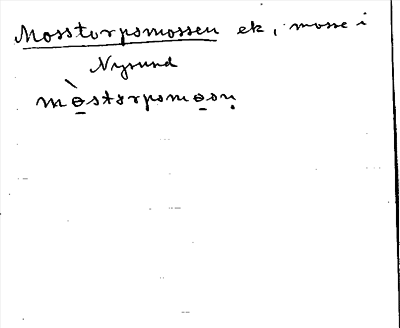 Mosstorpsmossen ek, mosse i
Nysund
mɵ̠̀storpsmɵ̠sṇ